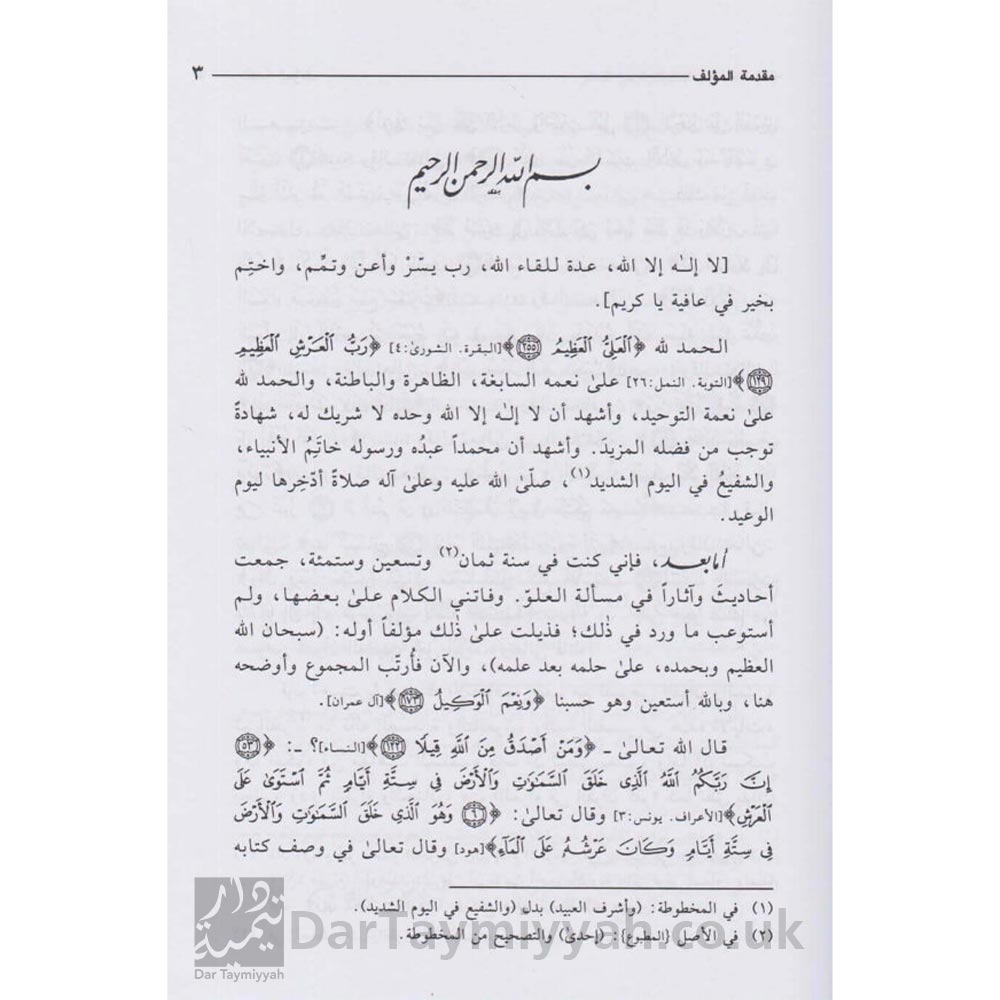 مقدمة المؤلف ٣
بسم الله الرحمن الرحيم
[لا إلٰه إلا الله، عدة للقاء الله، رب يسّرْ وأعن وتمِّم، واختِم
بخير في عافية يا كريم].
الحمد لله ﴿ٱلْعَلِىُّ ٱلْعَظِيمُ ۝٢٥٥﴾[البقرة. الشورىٰ:٤] ﴿رَبُّ ٱلْعَرْشِ ٱلْعَظِيمِ
۝١٢٩﴾[التوبة. النمل:٢٦] علىٰ نعمه السابغة، الظاهرة والباطنة، والحمد لله
علىٰ نعمة التوحيد، وأشهد أن لا إلٰه إلا الله وحده لا شريك له، شهادةً
توجب من فضله المزيدَ. وأشهد أن محمداً عبدُه ورسوله خاتَمُ الأنبياء،
والشفيعُ في اليوم الشديد(١)، صلّىٰ الله عليه وعلىٰ آله صلاةً أدّخِرها ليوم
الوعيد.
أما بعد، فإني كنت في سنة ثمان(٢) وتسعين وستمئة، جمعت
أحاديثَ وآثاراً في مسألة العلوّ. وفاتني الكلام علىٰ بعضها، ولم
أستوعب ما ورد في ذٰلك؛ فذيلت علىٰ ذٰلك مؤلفاً أوله: (سبحان الله
العظيم وبحمده، علىٰ حلمه بعد علمه)، والآن فأُرتّب المجموع وأوضحه
هنا، وبالله أستعين وهو حسبنا ﴿وَنِعْمَ ٱلْوَكِيلُ ۝١٧٣﴾[آل عمران].
قال الله تعالىٰ ـ ﴿وَمَنْ أَصْدَقُ مِنَ ٱللَّهِ قِيلًا ۝١٢٢﴾[النساء]؟ ـ: ﴿۝٥٣
إِنَّ رَبَّكُمُ ٱللَّهُ ٱلَّذِى خَلَقَ ٱلسَّمَٰوَٰتِ وَٱلْأَرْضَ فِى سِتَّةِ أَيَّامٍ ثُمَّ ٱسْتَوَىٰ عَلَى
ٱلْعَرْشِ﴾[الأعراف. يونس:٣] وقال تعالىٰ: ﴿۝٦ وَهُوَ ٱلَّذِى خَلَقَ ٱلسَّمَٰوَٰتِ وَٱلْأَرْضَ
فِى سِتَّةِ أَيَّامٍ وَكَانَ عَرْشُهُۥ عَلَى ٱلْمَآءِ﴾[هود] وقال تعالىٰ في وصف كتابه
(١) في المخطوطة: (وأشرف العبيد) بدل (والشفيع في اليوم الشديد).
(٢) في الأصل {المطبوع}: (إحدىٰ) والتصحيح من المخطوطة.
دار تيمية
Dar Taymiyyah
DarTaymiyyah.co.uk